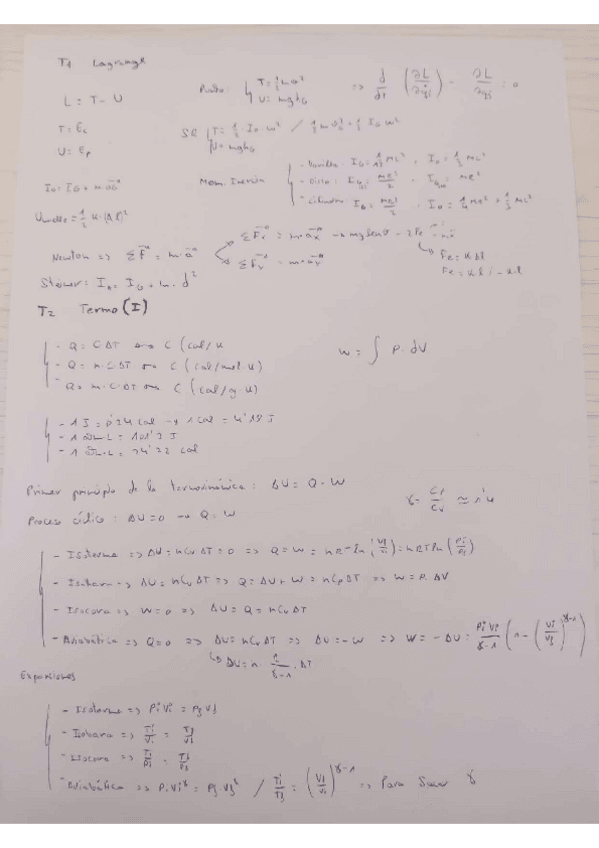 T1 Lagrange
L = T - U
Punto: { T = ½ m v² U = mgh_G => d/dt (∂L/∂q̇j) - ∂L/∂qj = 0
T = Ec
U = Ep
SR { T = ½ · I_0 · ω² / ½ m v_G² + ½ I_G ω²
U = mgh_G
I_0 = I_G + m
Mom. Inercia
- Varilla: I_G = 1/12 ML², I_0 = 1/3 ML²
- Disco: = mR²/2, = mR²
- Cilindro: I_G = mR²/2, I_0 = ¼ mR² + ⅓ mL²
U muelle = ½ K · (Δl)²
Newton => ΣF = m · a
ΣFx = m · ax
ΣFy = m · ay
Fe = K Δl
Steiner: I_0 = I_G + m · d²
T2 Termo (I)
- Q = C · ΔT C (cal/K
- Q = n · C · ΔT C (cal/mol · K)
- Q = m · C · ΔT C (cal/g · K)
W = ∫ P · dV
- 1 J = 0'24 cal → 1 cal = 4'18 J
- 1 atm·L = 101'3 J
- 1 atm·L = 24'22 cal
Primer principio de la termodinámica: ΔU = Q - W
γ = Cp/Cv ≃ 1'4
Proceso cíclico: ΔU = 0 → Q = W
- Isoterma => ΔU = nCvΔT = 0 => Q = W = nRT ln (Vf/Vi) = nRT ln (Pi/Pf)
- Isobara => ΔU = nCvΔT => Q = ΔU + W = nCpΔT => W = P · ΔV
- Isocora => W = 0 => ΔU = Q = nCvΔT
- Adiabática => Q = 0 => ΔU = nCvΔT => ΔU = -W => W = -ΔU = PiVi/γ-1 (1 - (Vi/Vf)^γ-1)
ΔU = n · /γ-1 · ΔT
Expansiones
- Isoterma => PiVi = PfVf
- Isobara => Ti/Vi = Tf/Vf
- Isocora => Ti/Pi = Tf/Pf
- Adiabática => Pi·Vi^γ = Pf·Vf^γ / Ti/Tf = (Vf/Vi)^γ-1 => Para sacar γ